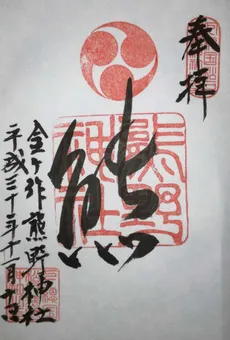 奉拝
熊
熊野神社
金ヶ作熊野神社
平成三十年十一月十四日